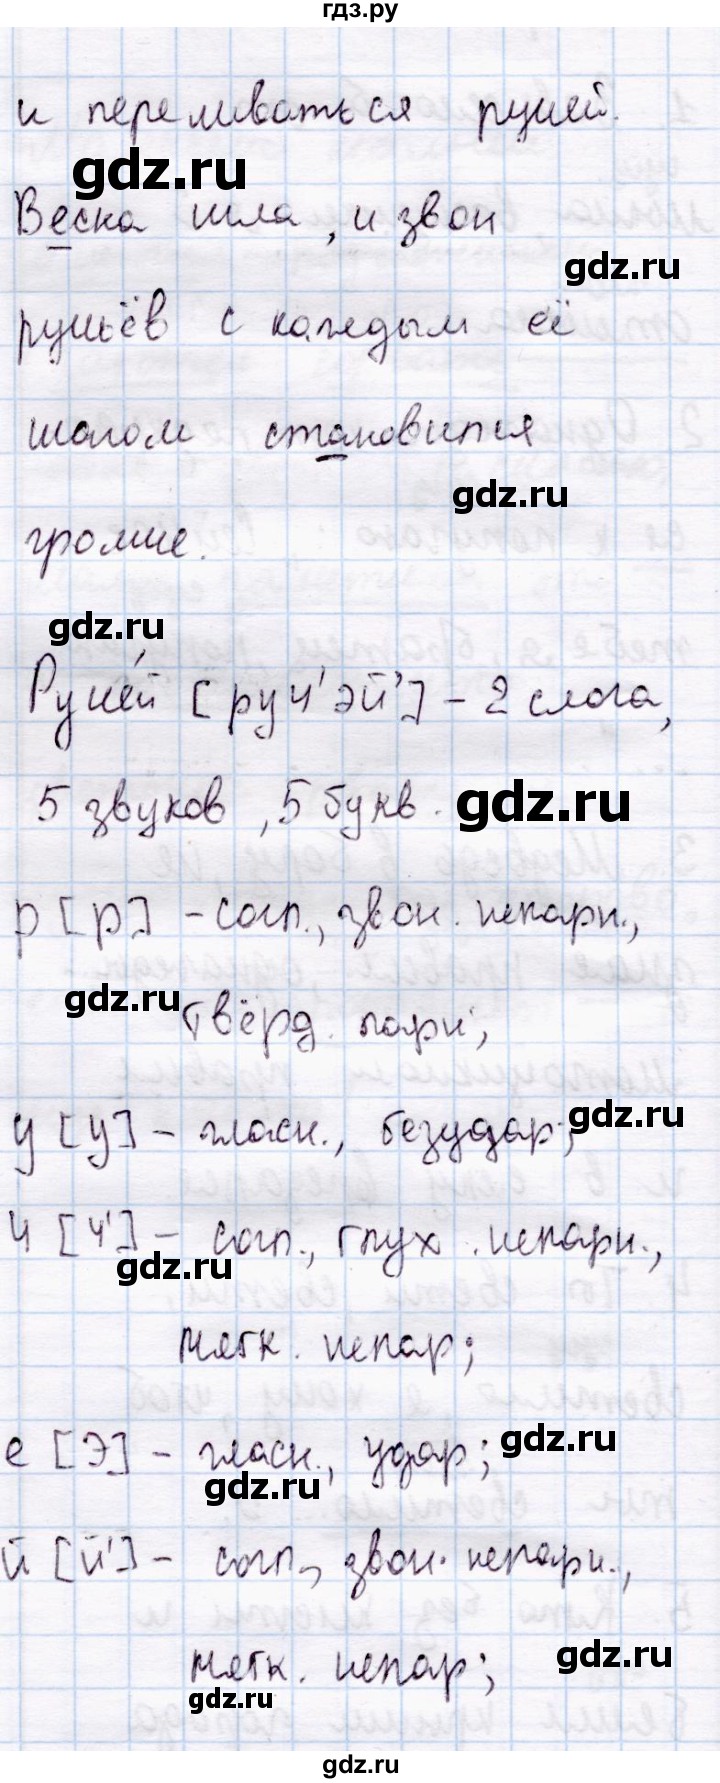 гдз.ру
и переливаться ручей.
gdz.ru
Весна шла, и звон
gdz.ru
ручьёв с каждым её
шагом становился
gdz.ru
громче.
gdz.ru
Руче́й [руч'эй'] – 2 слога,
5 звуков, 5 букв.
gdz.ru
р [р] – согл., звон. непарн.,
gdz.ru
твёрд. парн;
у [у] – гласн., безудар;
gdz.ru
ч [ч'] – согл., глух. непарн.,
gdz.ru
мягк. непар;
е [э] – гласн., удар;
gdz.ru
gdz.ru
й [й'] – согл., звон. непарн.,
мягк. непар;
gdz.ru
gdz.ru
gdz.ru